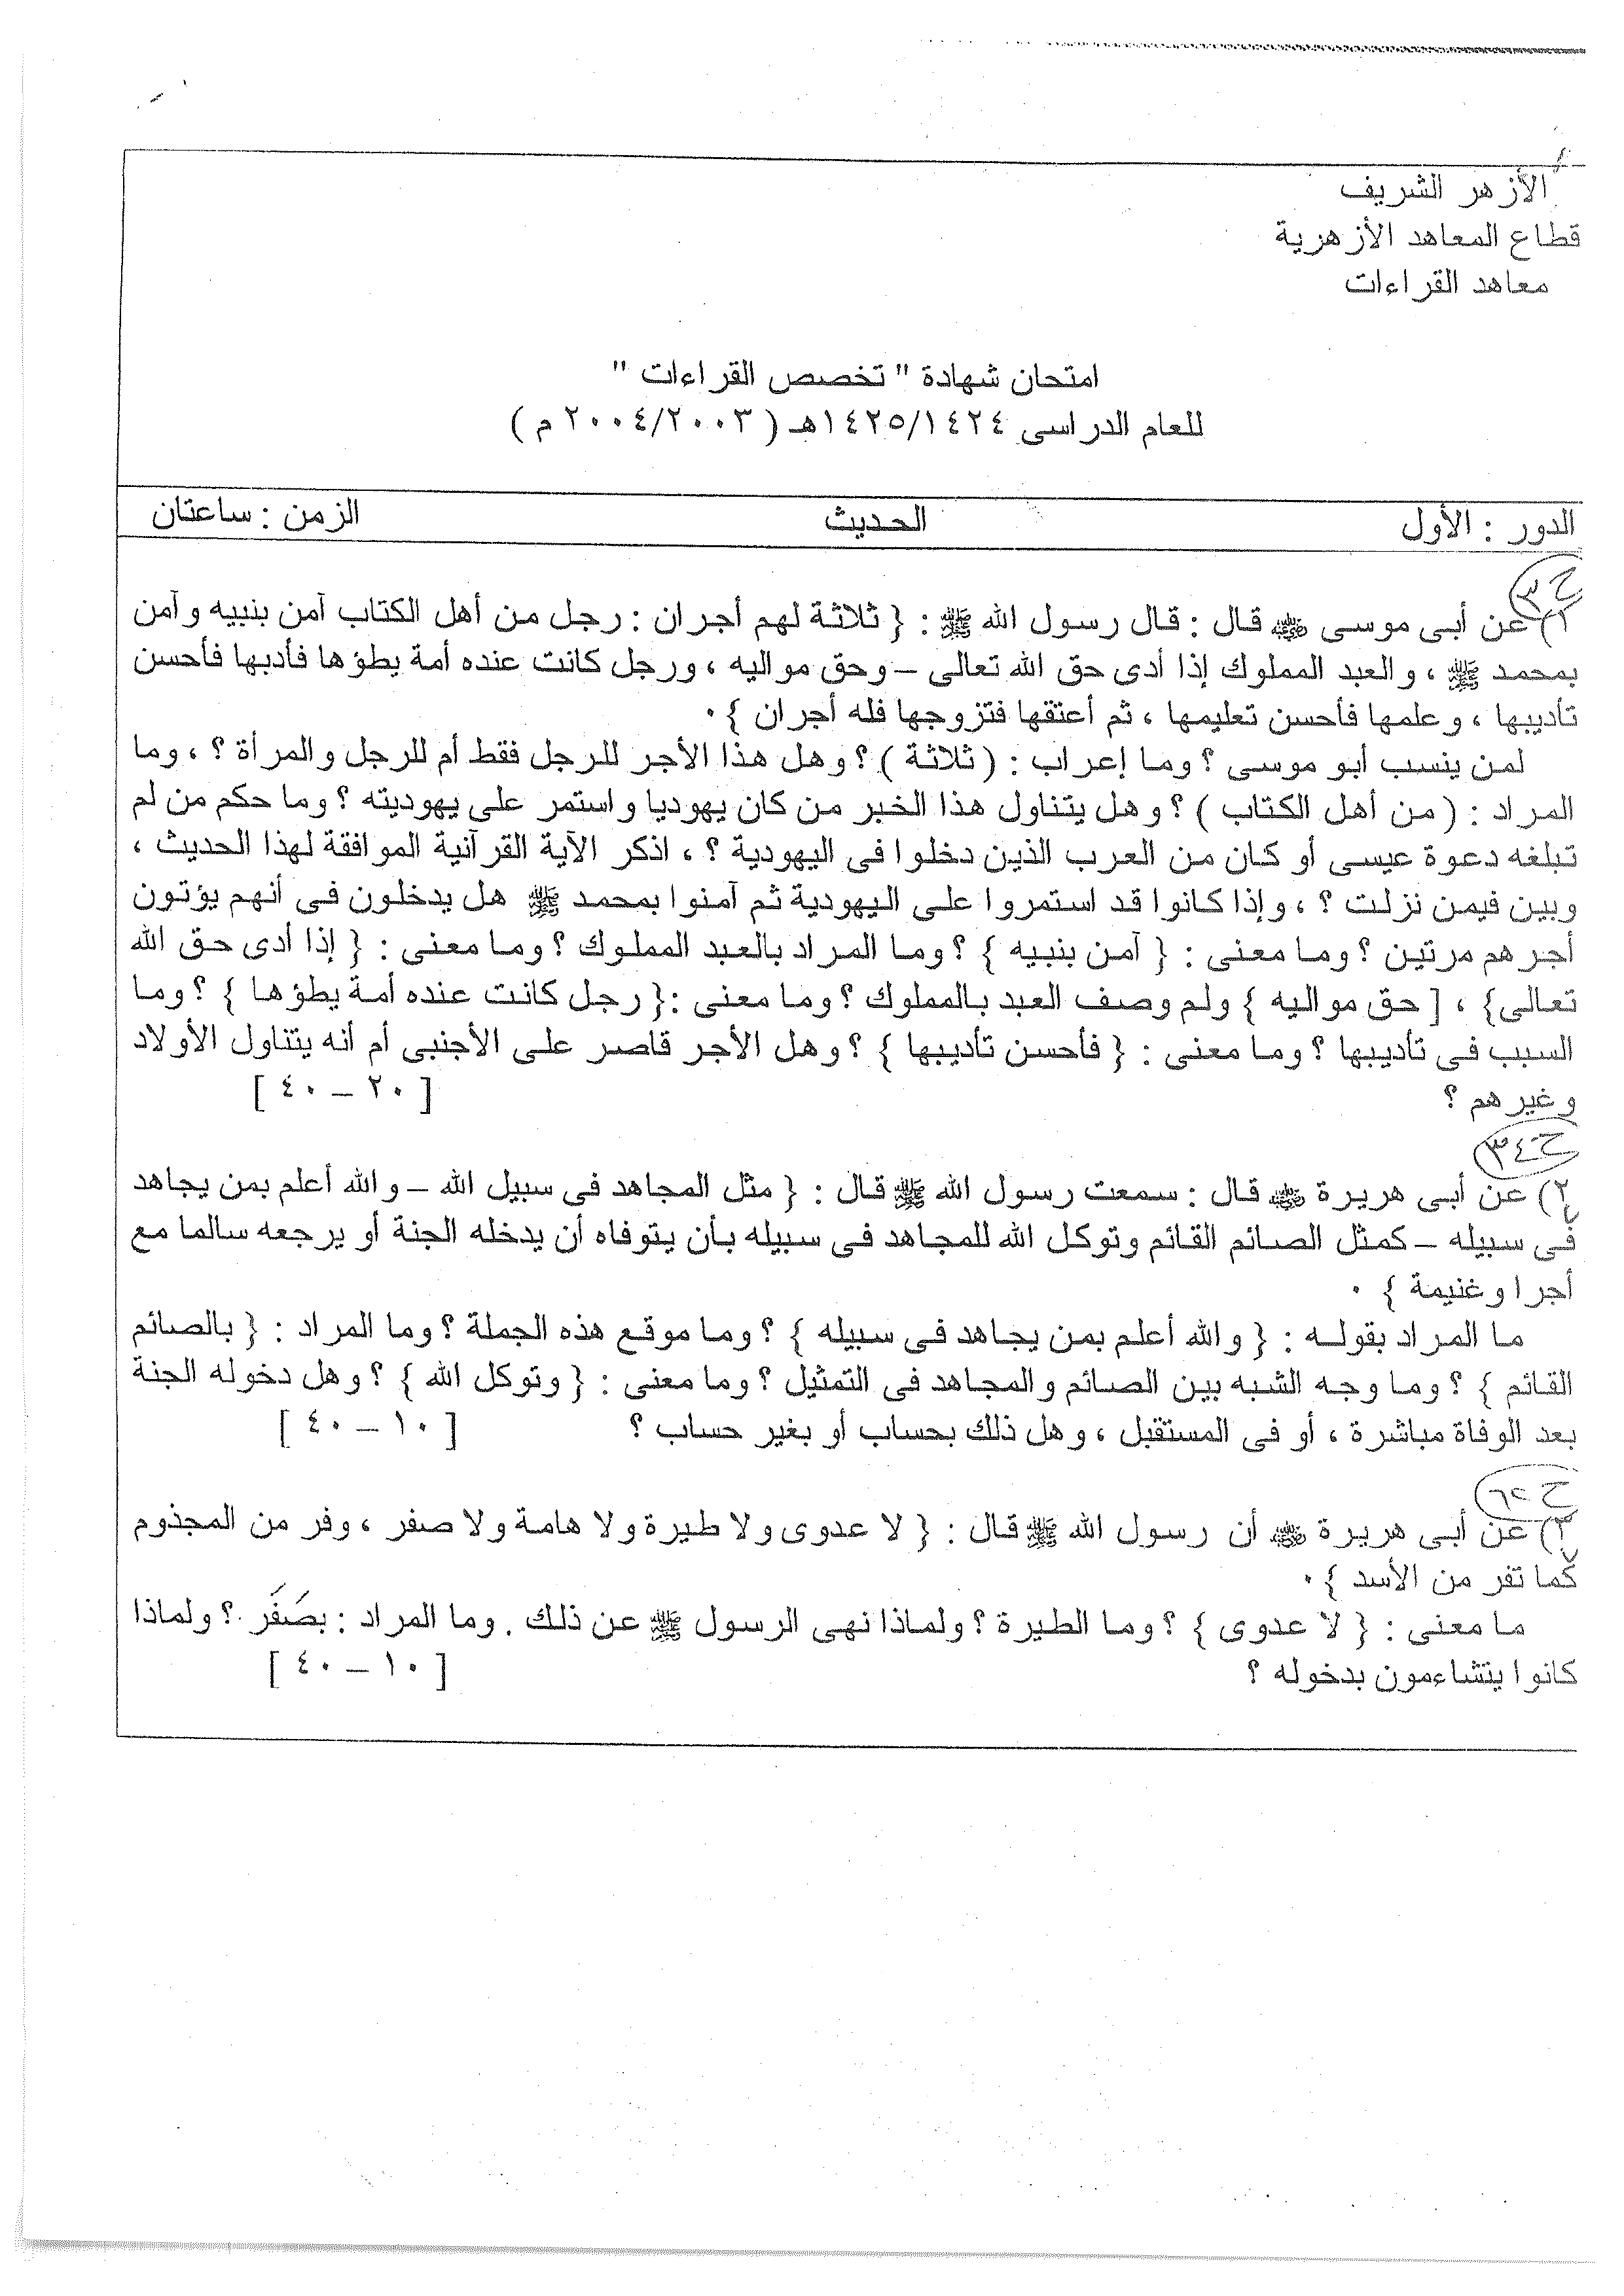 الأزهر الشريف
قطاع المعاهد الأزهرية
معاهد القراءات
امتحان شهادة " تخصص القراءات "
للعام الدراسى ١٤٢٥/١٤٢٤هـ ( ٢٠٠٤/٢٠٠٣ م )
الدور : الأول الحديث الزمن : ساعتان
ح ٣
١) عن أبى موسى ﷺ قال : قال رسول الله ﷺ : { ثلاثة لهم أجران : رجل من أهل الكتاب آمن بنبيه وآمن
بمحمد ﷺ ، والعبد المملوك إذا أدى حق الله تعالى – وحق مواليه ، ورجل كانت عنده أمة يطؤها فأدبها فأحسن
تأديبها ، وعلمها فأحسن تعليمها ، ثم أعتقها فتزوجها فله أجران } ٠
لمن ينسب أبو موسى ؟ وما إعراب : ( ثلاثة ) ؟ وهل هذا الأجر للرجل فقط أم للرجل والمرأة ؟ ، وما
المراد : ( من أهل الكتاب ) ؟ وهل يتناول هذا الخبر من كان يهوديا واستمر على يهوديته ؟ وما حكم من لم
تبلغه دعوة عيسى أو كان من العرب الذين دخلوا فى اليهودية ؟ ، اذكر الآية القرآنية الموافقة لهذا الحديث ،
وبين فيمن نزلت ؟ ، وإذا كانوا قد استمروا على اليهودية ثم آمنوا بمحمد ﷺ هل يدخلون فى أنهم يؤتون
أجرهم مرتين ؟ وما معنى : { آمن بنبيه } ؟ وما المراد بالعبد المملوك ؟ وما معنى : { إذا أدى حق الله
تعالى} ، [ حق مواليه } ولم وصف العبد بالمملوك ؟ وما معنى :{ رجل كانت عنده أمة يطؤها } ؟ وما
السبب فى تأديبها ؟ وما معنى : { فأحسن تأديبها } ؟ وهل الأجر قاصر على الأجنبى أم أنه يتناول الأولاد
وغيرهم ؟ [ ٢٠ – ٤٠ ]
ح ٣٤
٢) عن أبى هريرة ﷺ قال : سمعت رسول الله ﷺ قال : { مثل المجاهد فى سبيل الله – والله أعلم بمن يجاهد
فى سبيله – كمثل الصائم القائم وتوكل الله للمجاهد فى سبيله بأن يتوفاه أن يدخله الجنة أو يرجعه سالما مع
أجرا وغنيمة } ٠
ما المراد بقوله : { والله أعلم بمن يجاهد فى سبيله } ؟ وما موقع هذه الجملة ؟ وما المراد : { بالصائم
القائم } ؟ وما وجه الشبه بين الصائم والمجاهد فى التمثيل ؟ وما معنى : { وتوكل الله } ؟ وهل دخوله الجنة
بعد الوفاة مباشرة ، أو فى المستقبل ، وهل ذلك بحساب أو بغير حساب ؟ [ ١٠ – ٤٠ ]
ح
٣) عن أبى هريرة ﷺ أن رسول الله ﷺ قال : { لا عدوى ولا طيرة ولا هامة ولا صفر ، وفر من المجذوم
كما تفر من الأسد } ٠
ما معنى : { لا عدوى } ؟ وما الطيرة ؟ ولماذا نهى الرسول ﷺ عن ذلك . وما المراد : بصَفَر ؟ ولماذا
كانوا يتشاءمون بدخوله ؟ [ ١٠ – ٤٠ ]